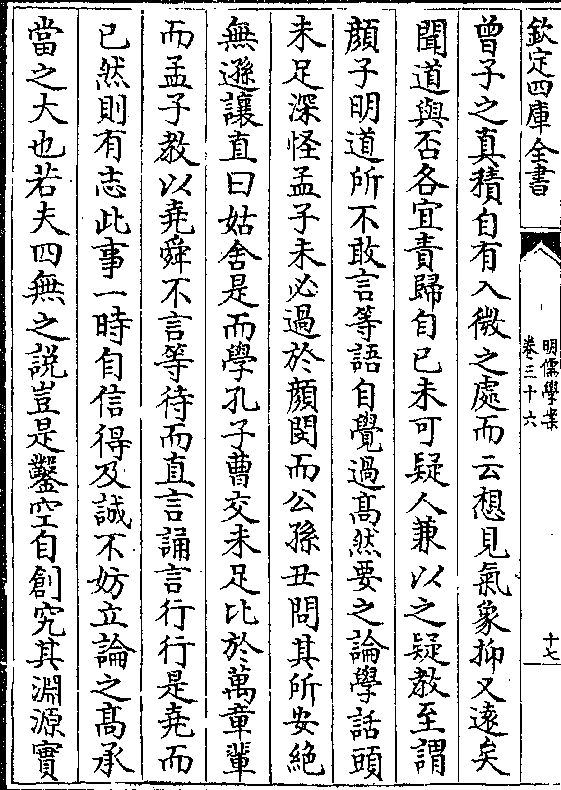 欽定四庫全書
明儒學案
卷三十六
十七
曾子之真積自有入微之處而云想見氣象抑又遠矣
聞道與否各宜責歸自已未可疑人兼以之疑教至謂
顔子明道所不敢言等語自覺過髙然要之論學話頭
未足深怪孟子未必過於顔閔而公孫丑問其所安絶
無遜讓直曰姑舍是而學孔子曹交未足比於萬章輩
而孟子教以堯舜不言等待而直言誦言行行是堯而
已然則有志此事一時自信得及誠不妨立論之髙承
當之大也若夫四無之說豈是鑿空自創究其淵源實